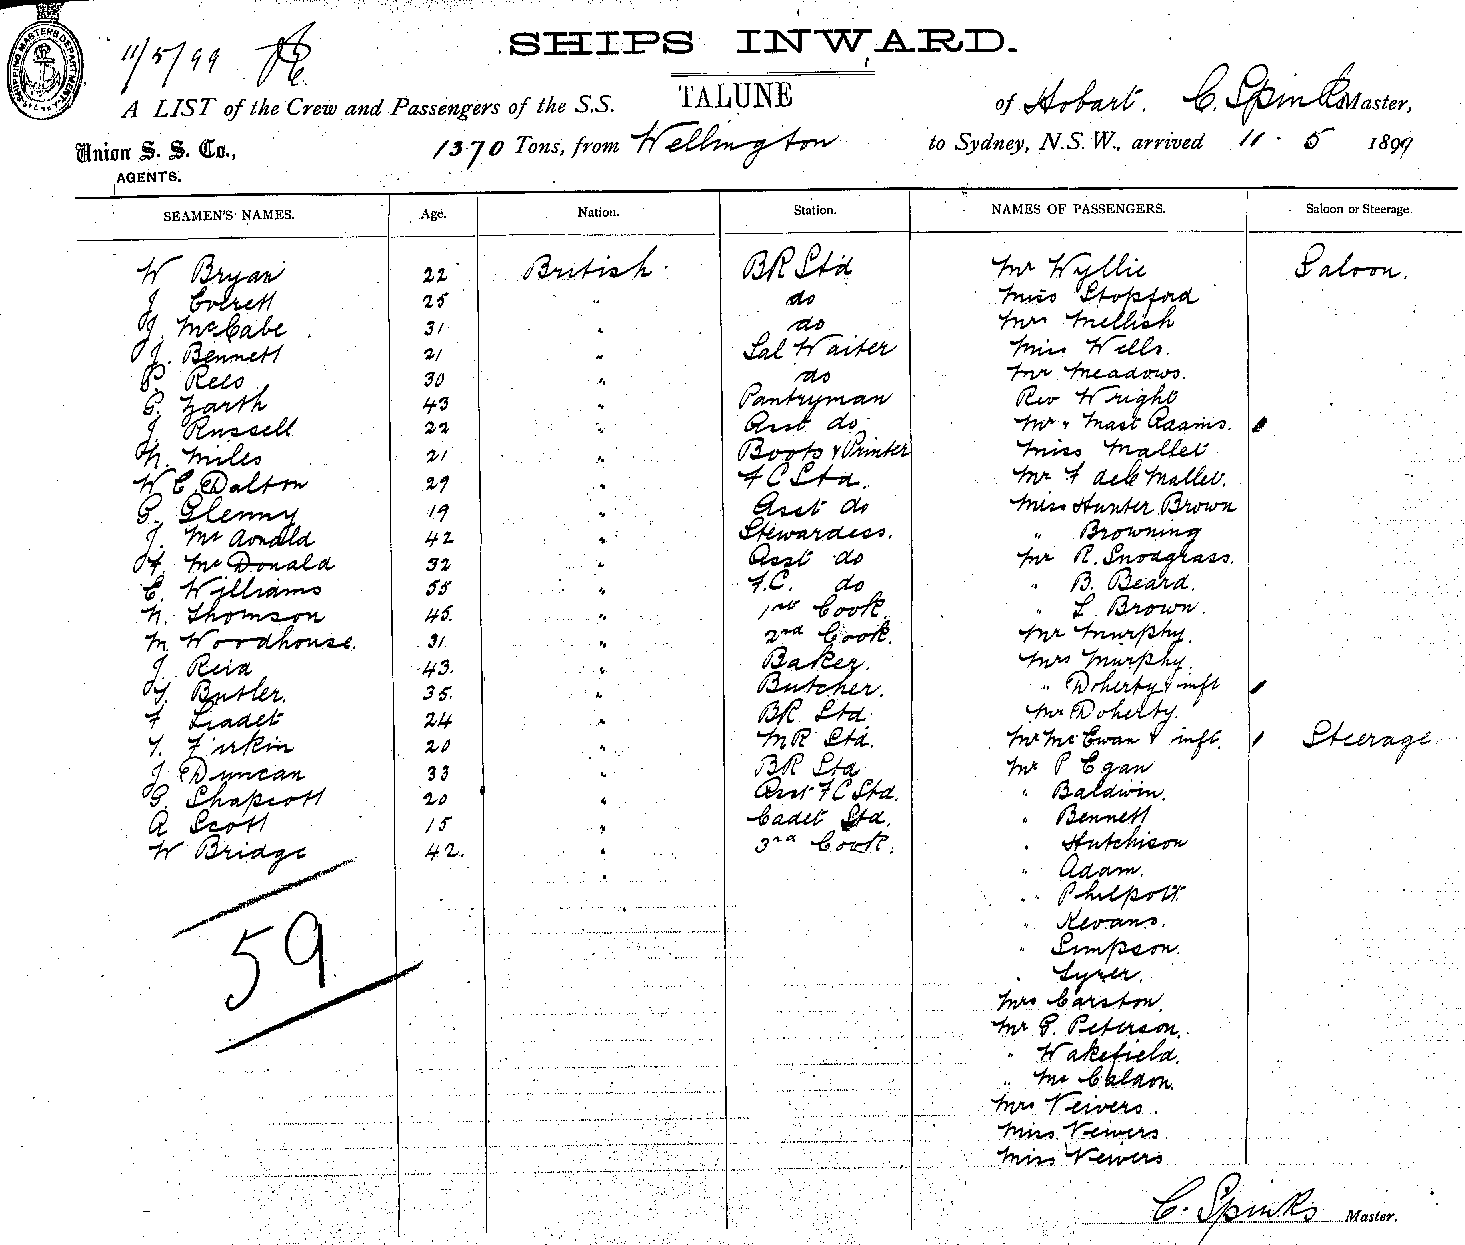 SHIPPING MASTERS DEPARTMENT
11/5/99
SHIPS INWARD.
A LIST of the Crew and Passengers of the S.S. TALUNE of Hobart. C. Spinks Master,
Union S. S. Co., 1370 Tons, from Wellington to Sydney, N.S.W., arrived 11 . 5 1899
AGENTS.
SEAMEN'S NAMES. Age. Nation. Station. NAMES OF PASSENGERS. Saloon or Steerage.
W Bryan 22 British BR Std Mr Wyllie Saloon.
J. Everett 25 " do Miss Stopford
J. McCabe 31 " do Mrs Mellish
J. Bennett 21 " Sal Waiter Miss Wells.
P. Rees 30 " do Mr Meadows.
43 " Pantryman Rev Wright
J. Russell 22 " Asst do Mr " Mast Adams.
N. Miles 21 " Boots & Printer Miss Mallet
W C Dalton 29 " FC Std. Mr F de C Mallet.
P. Glenny 19 " Asst do Miss Hunter Brown
J. 42 " Stewardess. " Browning
H. McDonald 32 " Asst do Mr R. Snodgrass.
E. Williams 55 " F.C. do " B. Beard.
N. Thomson 45. " 1st Cook. " L. Brown.
M Woodhouse. 31 " 2nd Cook. Mr Murphy.
J. Reid 43. " Baker. Mrs Murphy.
T. Butler. 35. " Butcher. " Doherty & inft
F 24 " BR Std Mr Doherty.
T. Firkin 20 " MR Std. Mr McEwan & inft. Steerage
J. Duncan 33 " BR Std Mr P Egan
G. Shapcott 20 " Asst FC Std. " Baldwin.
A Scott 15 " Cadet Std. " Bennett
W Bridge 42. " 3rd Cook. " Hutchison
" " Adam.
" Philpott
59 " Kevans.
" Simpson.
" Syrer.
Mrs Carston.
Mr P. Peterson.
" Wakefield.
" McCaldon.
Mrs Veivers.
Miss Veivers
Miss Veivers
C. Spinks Master.